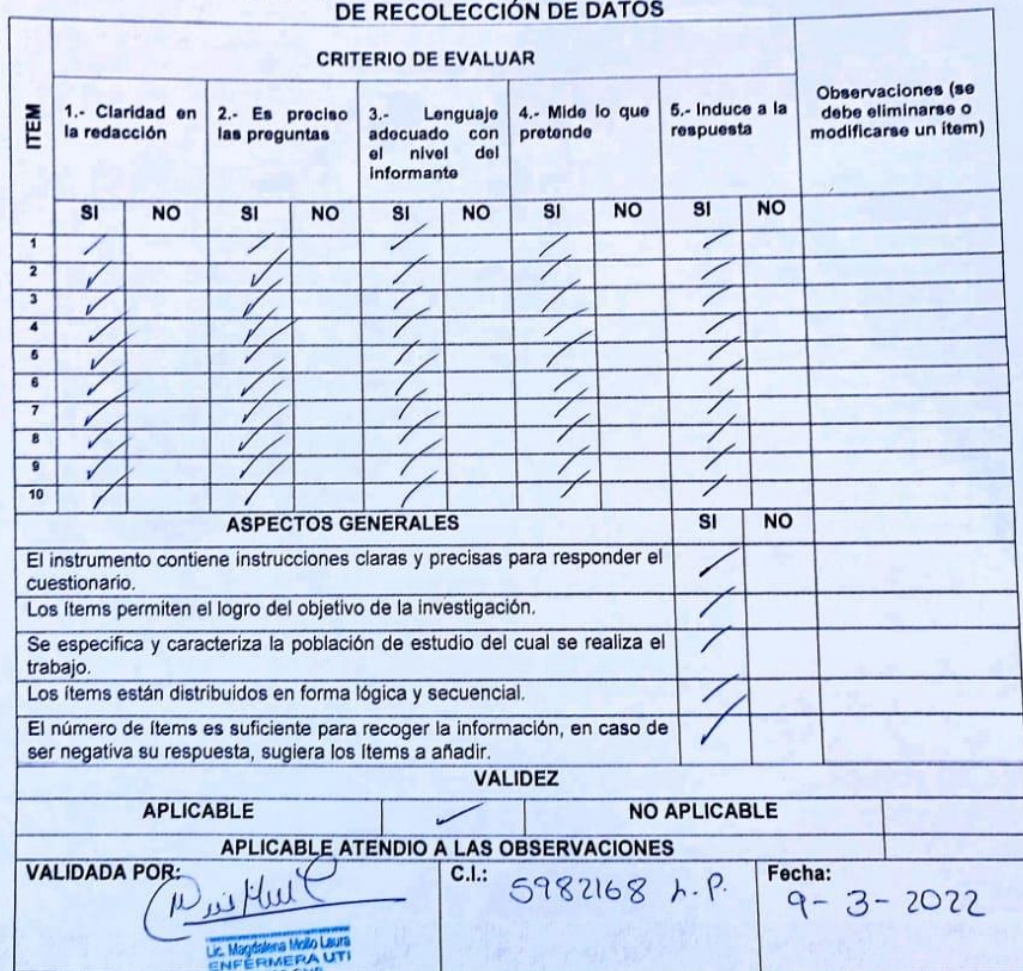 DE RECOLECCIÓN DE DATOS
ITEM
CRITERIO DE EVALUAR
Observaciones (se
debe eliminarse o
modificarse un ítem)
1.- Claridad en
la redacción
2.- Es preciso
las preguntas
3.- Lenguaje
adecuado con
el nivel del
informante
4.- Mide lo que
pretende
5.- Induce a la
respuesta
SI NO SI NO SI NO SI NO SI NO
1
2
3
4
5
6
7
8
9
10
ASPECTOS GENERALES SI NO
El instrumento contiene instrucciones claras y precisas para responder el
cuestionario.
Los ítems permiten el logro del objetivo de la investigación.
Se especifica y caracteriza la población de estudio del cual se realiza el
trabajo.
Los ítems están distribuidos en forma lógica y secuencial.
El número de ítems es suficiente para recoger la información, en caso de
ser negativa su respuesta, sugiera los ítems a añadir.
VALIDEZ
APLICABLE NO APLICABLE
APLICABLE ATENDIO A LAS OBSERVACIONES
VALIDADA POR: C.I.: 5982168 L.P. Fecha:
9-3-2022
Lic. Magdalena Mollo Laura
ENFERMERA UTI